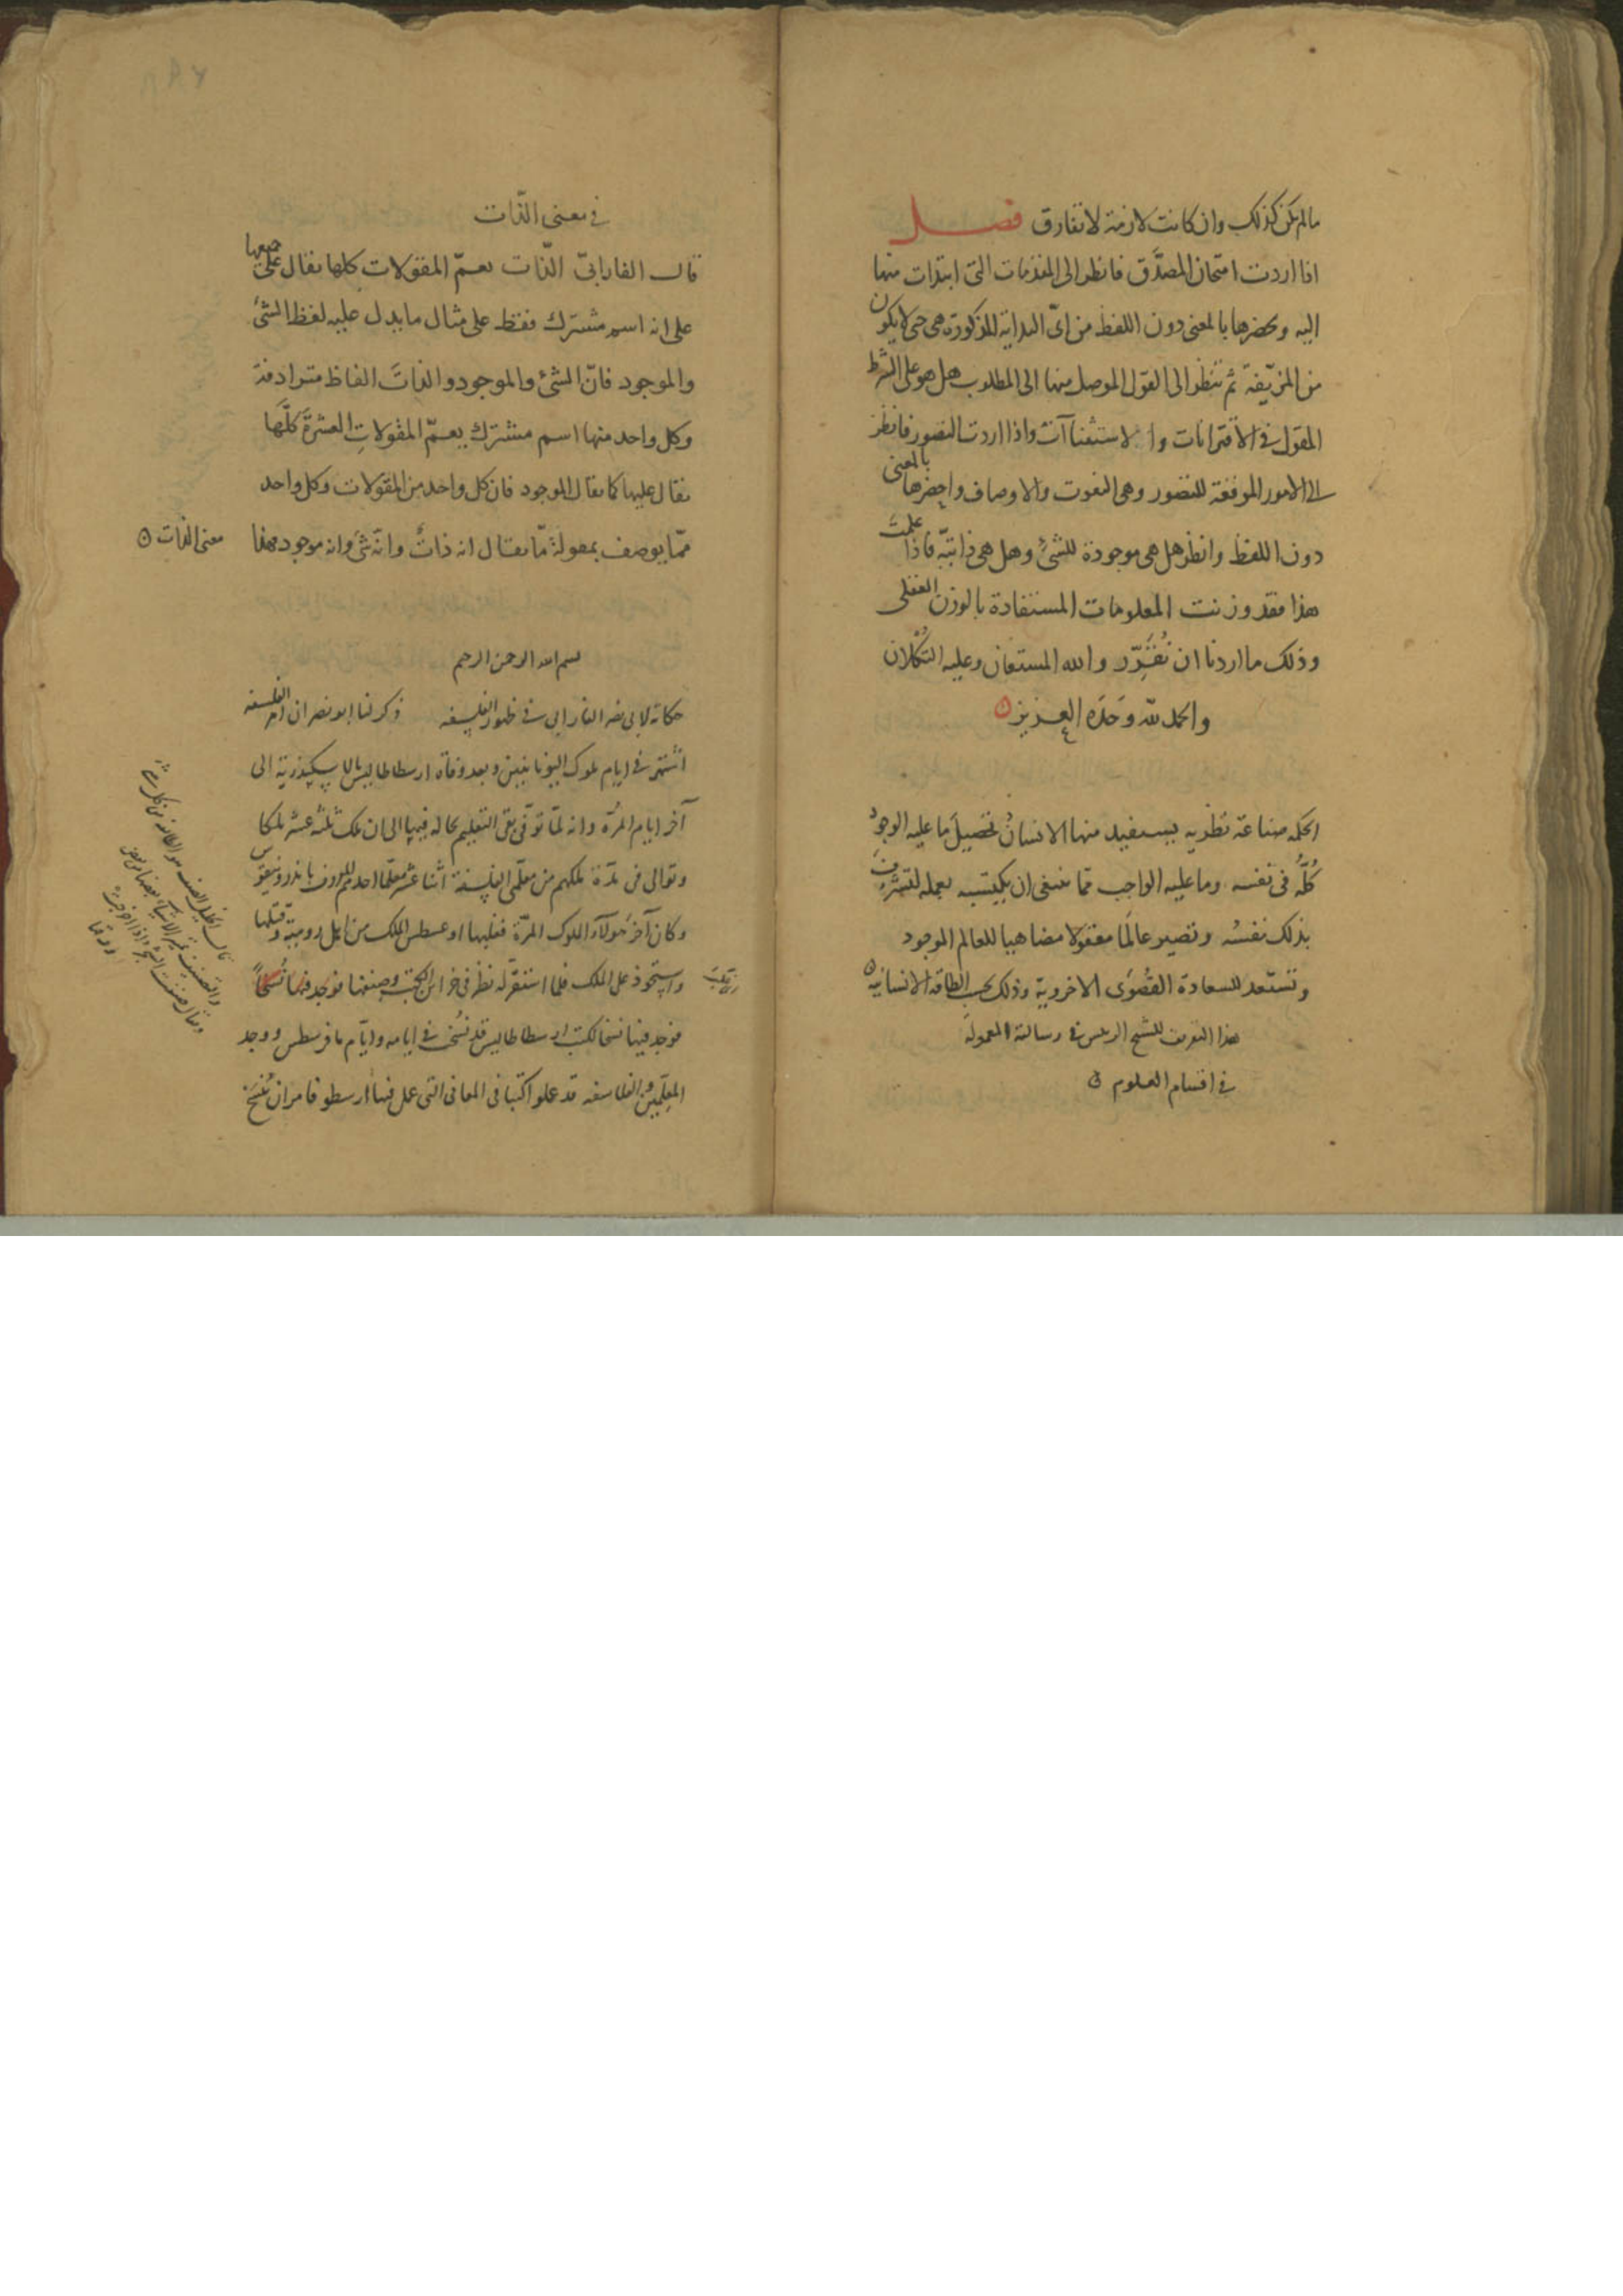 مالم يكن كذلك وان كانت لازمة لا تفارق فصل
اذا اردت امتحان المصدَّق فانظر الى المقدمات التى ابتدات منها
اليه وتحضرها بالمعنى دون اللفظ من اىّ البداية المذكورة هى حتى لا يكون
من المزيّفة ثم تنظر الى القول الموصل منها الى المطلوب هل هو على الشرط
المقول فى الاقترانات والاستثناآت واذا اردت التصور فانظر
الى الامور الموقعة للتصور وهى النعوت والاوصاف واحضرها بالمعنى
دون اللفظ وانظر هل هى موجودة للشئ وهل هى ذاتيّة فاذا علمت
هذا فقد وزنت المعلومات المستفادة بالوزن العقلى
وذلك ما اردنا ان نُقَرِّر والله المستعان وعليه التُكلان
والحمد لله وَحدَه العزيز
الحكمه صناعة نظريه يستفيد منها الانسانُ تحصيلَ ما عليه الوجود
كُلُّه فى نفسه وما عليه الواجب مما ينبغى ان يكتسبه بعمله لتشرف
بذلك نفسُه وتصير عالَمًا معقولا مضاهيا للعالم الموجود
وتستعد للسعادة القُصوَى الاخروية وذلك بحسب الطاقه الانسانيه
هذا التعريف للشيخ الرئيس فى رسالته المعمولة
فى اقسام العلوم
فى معنى الذّات
قال الفارابىّ الذّات يعمّ المقولات كلها يقال على جميعها
على انه اسم مشترك فقط على مثال ما يدل عليه لفظ الشئ
والموجود فانّ الشئ والموجود والذات الفاظ مترادفة
وكل واحد منها اسم مشترك يعمّ المقولاتِ العشرة كلّها
يقال عليها كما يقال الموجود فان كل واحد من المقولات وكل واحد
ممّا يوصف بمقولة مّا يقال انه ذاتٌ وانّه شئ وانه موجود فهذا
معنى الذات
بسم الله الرحمن الرحيم
حكاية لابى نصر الفارابى فى ظهور الفلسفه ذكر لنا ابو نصر ان امر الفلسفه
اشتهر فى ايام ملوك اليونانيين وبعد وفاة ارسطاطاليس بالاسكندرية الى
آخر ايام المرأة وانه لمّا توفى بقى التعليم بحاله فيها الى ان ملك ثلثه عشر ملكا
وتوالى فى مدّة ملكهم من معلّمى الفلسفة اثنا عشر معلّما احدهم المعروف باندرونيقوس
وكان آخرَ هؤلآء الملوك المرأة فغلبها اوغسطس الملك من اهل رومية وقتلها
واستحوذ على الملك فلما استقرّ له نظر فى خزائن الكتب وصنعها فوجد فيها نُسَخًا
فوجد فيها نسخا لكتب ارسطاطاليس قد نُسخت فى ايامه وايّام ثاوفرسطس ووجد
المعلّمين والفلاسفه قد عملوا كتبا فى المعانى التى عمل فيها ارسطو فامر ان تُنسَخ